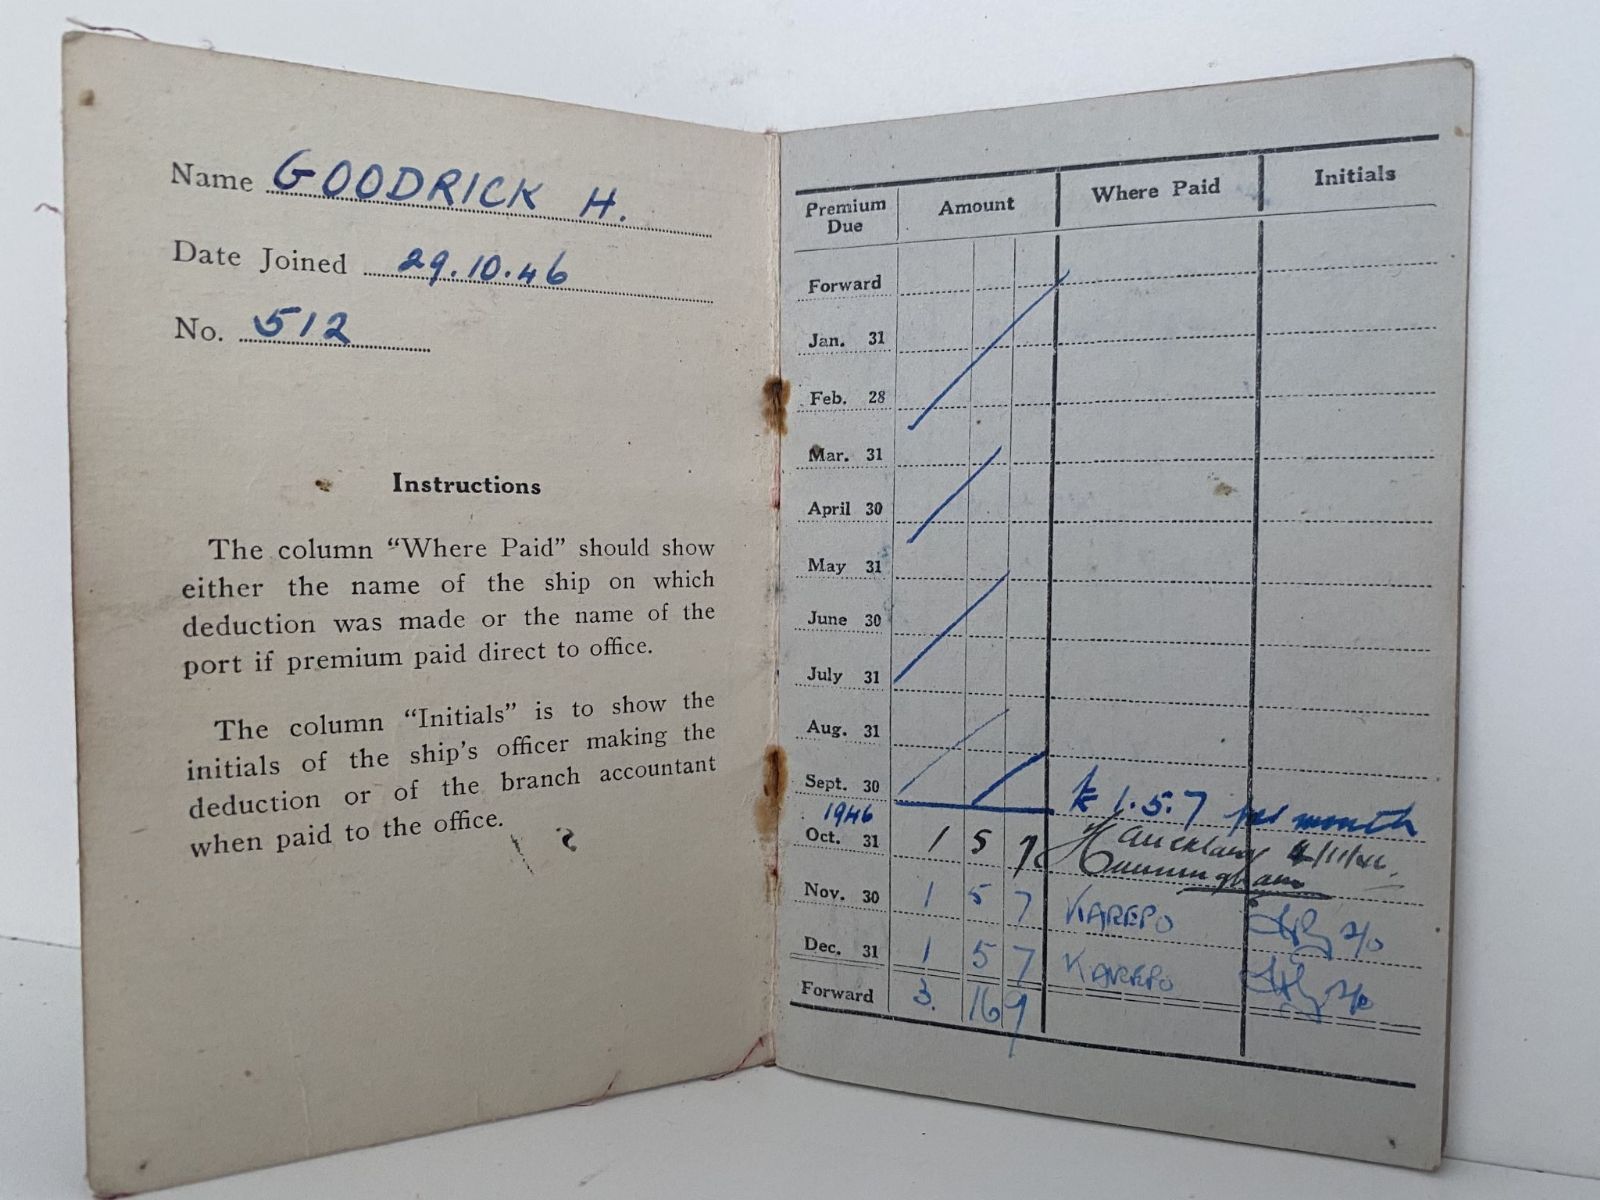 Name GOODRICK H.
Date Joined 29.10.46
No. 512
Instructions
The column "Where Paid" should show
either the name of the ship on which
deduction was made or the name of the
port if premium paid direct to office.
The column "Initials" is to show the
initials of the ship's officer making the
deduction or of the branch accountant
when paid to the office.
Premium Due Amount Where Paid Initials
Forward
Jan. 31
Feb. 28
Mar. 31
April 30
May 31
June 30
July 31
Aug. 31
Sept. 30 1.5.7 per month
1946
Oct. 31 1 5 7 Auckland 4/11/46
Cunningham
Nov. 30 1 5 7 KAREPO
Dec. 31 1 5 7 KAREPO
Forward 3. 16 9